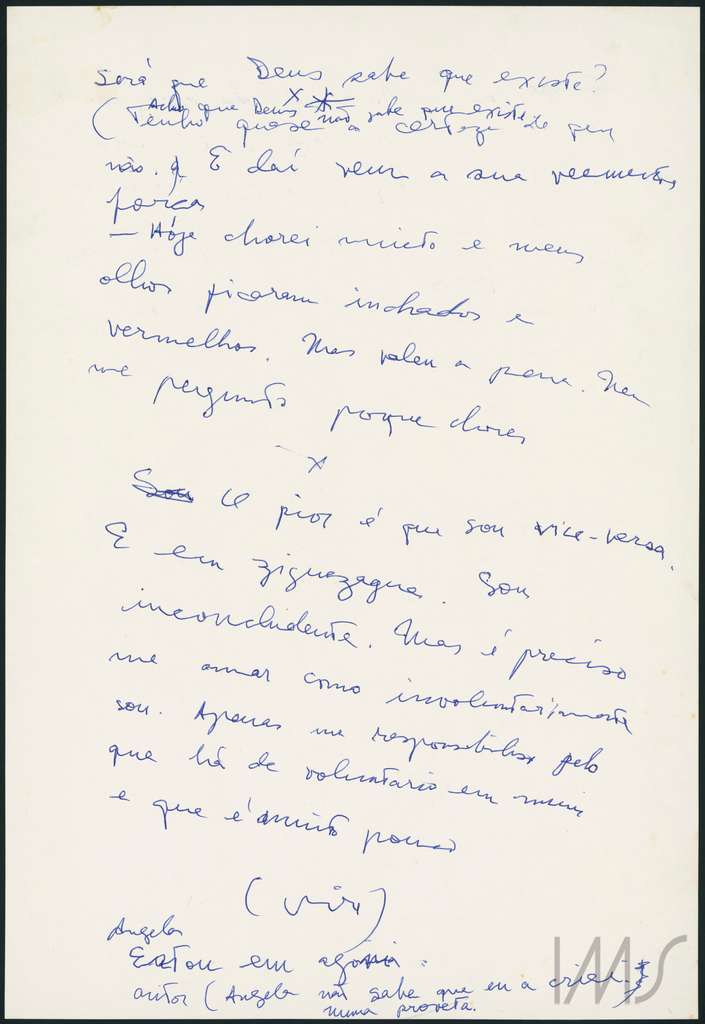 Será que Deus sabe que existe?
x
Acho que Deus não sabe que existe
(Tenho quase a certeza de que
não. E daí vem a sua veemente
força
— Hoje chorei muito e meus
olhos ficaram inchados e
vermelhos. Mas valeu a pena. Nem
me pergunto porque chorei
x
Sou O pior é que sou vice-versa.
E em ziguezague. Sou
inconcludente. Mas é preciso
me amar como involuntariamente
sou. Apenas me responsabilizo pelo
que há de voluntario em mim
e que é muito pouco
(vire)
Angela
Estou em agonia:
autor (Angela não sabe que eu a criei
numa proveta.
IMS